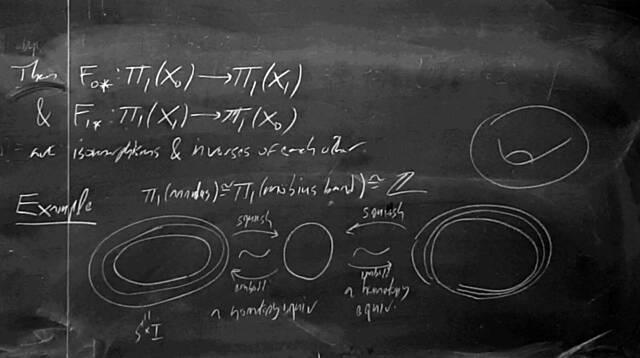 Then F₀* : π₁(X₀) → π₁(X₁)
& F₁* : π₁(X₁) → π₁(X₀)
are isomorphisms & inverses of each other.
Example π₁(annulus) ≅ π₁(mobius band) ≅ ℤ
squish squish
~ ≃
embed embed
a homotopy equiv a homotopy equiv.
S¹×I